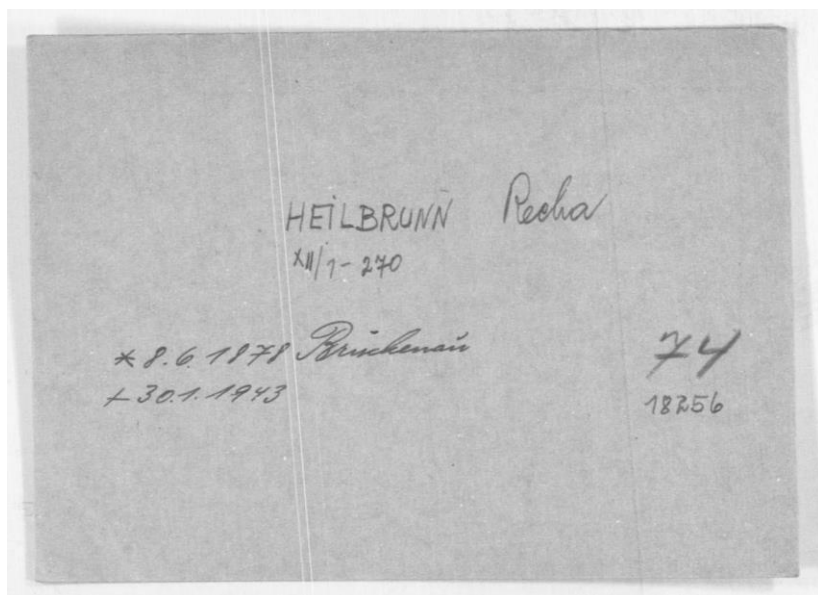 HEILBRUNN Recha
XII/1-270
* 8.6.1878 Brückenau
74
+ 30.1.1943
18256